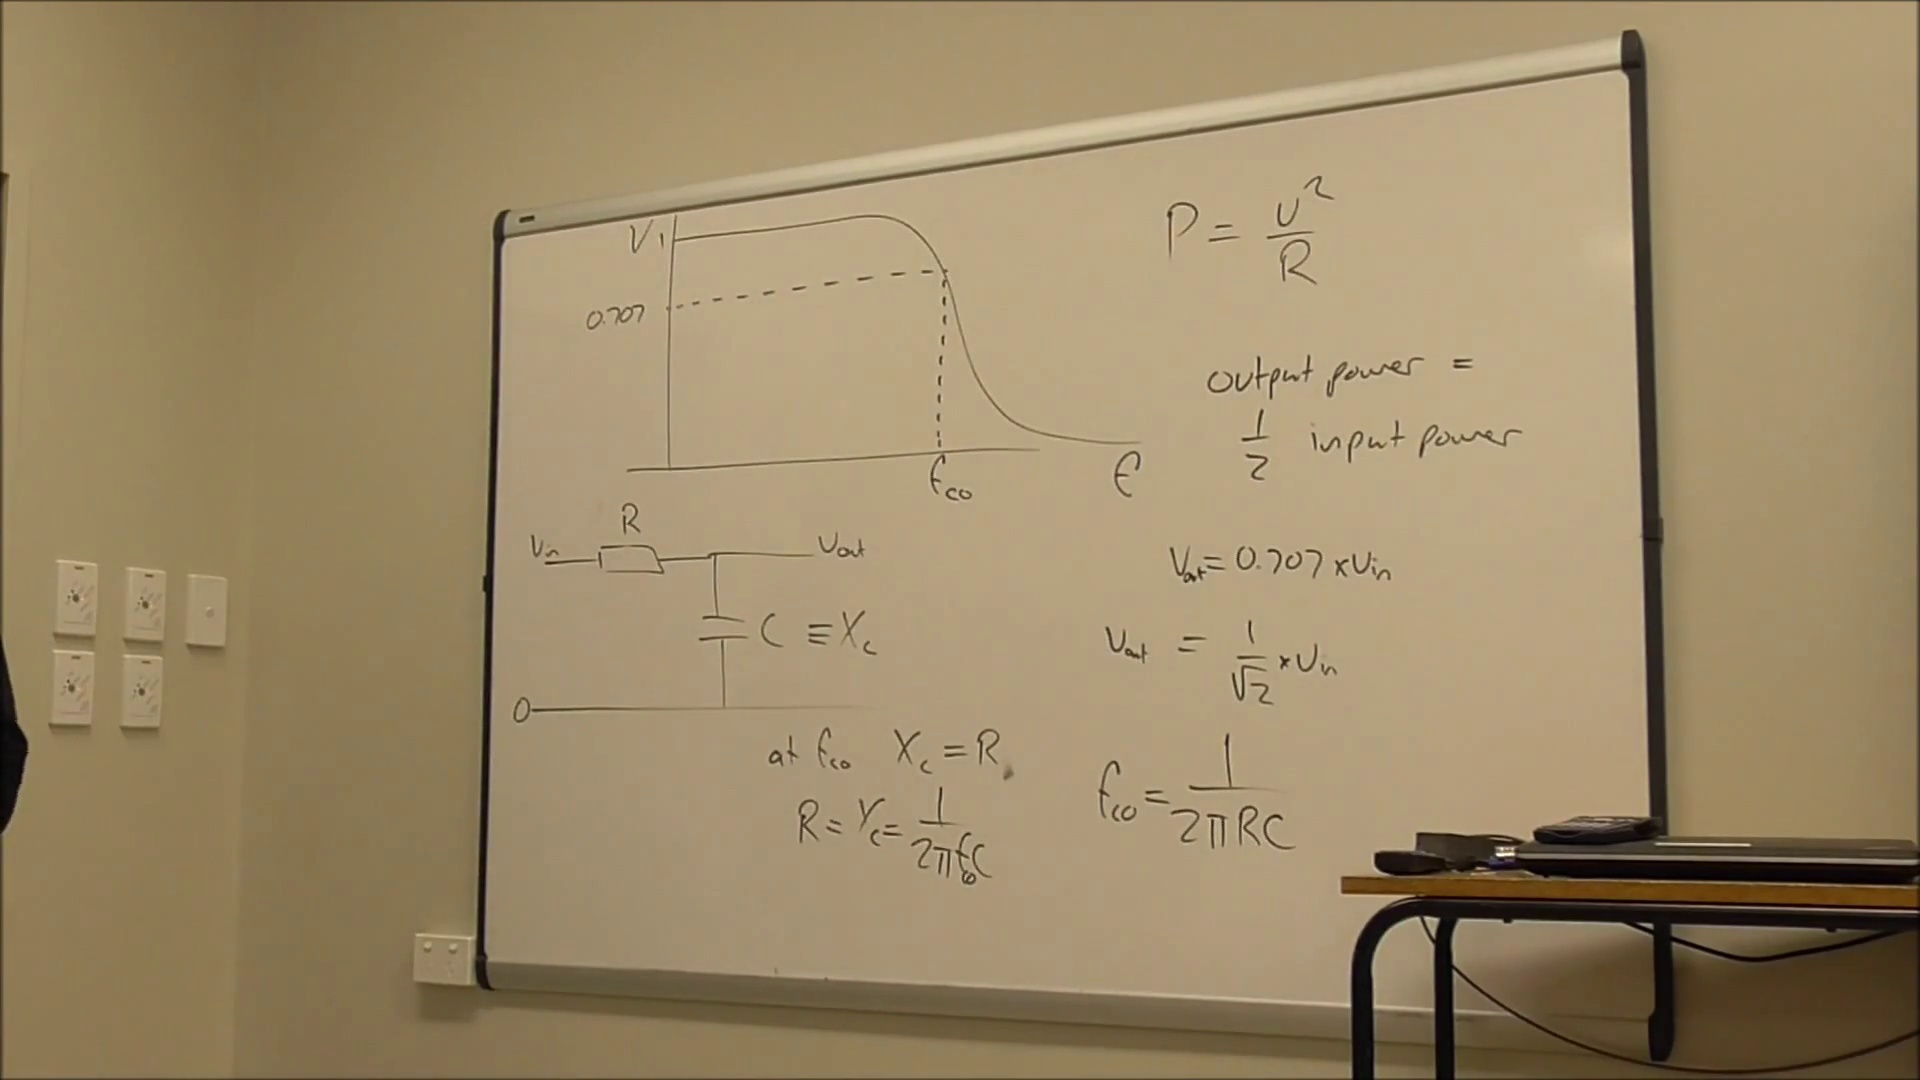 V 1
0.707
fco f
R
Vin Vout
C ≡ Xc
0
at fco Xc = R
R = Xc = 1/2πfcoC
P = V²/R
output power =
1/2 input power
Vout = 0.707 × Vin
Vout = 1/√2 × Vin
fco = 1/2πRC